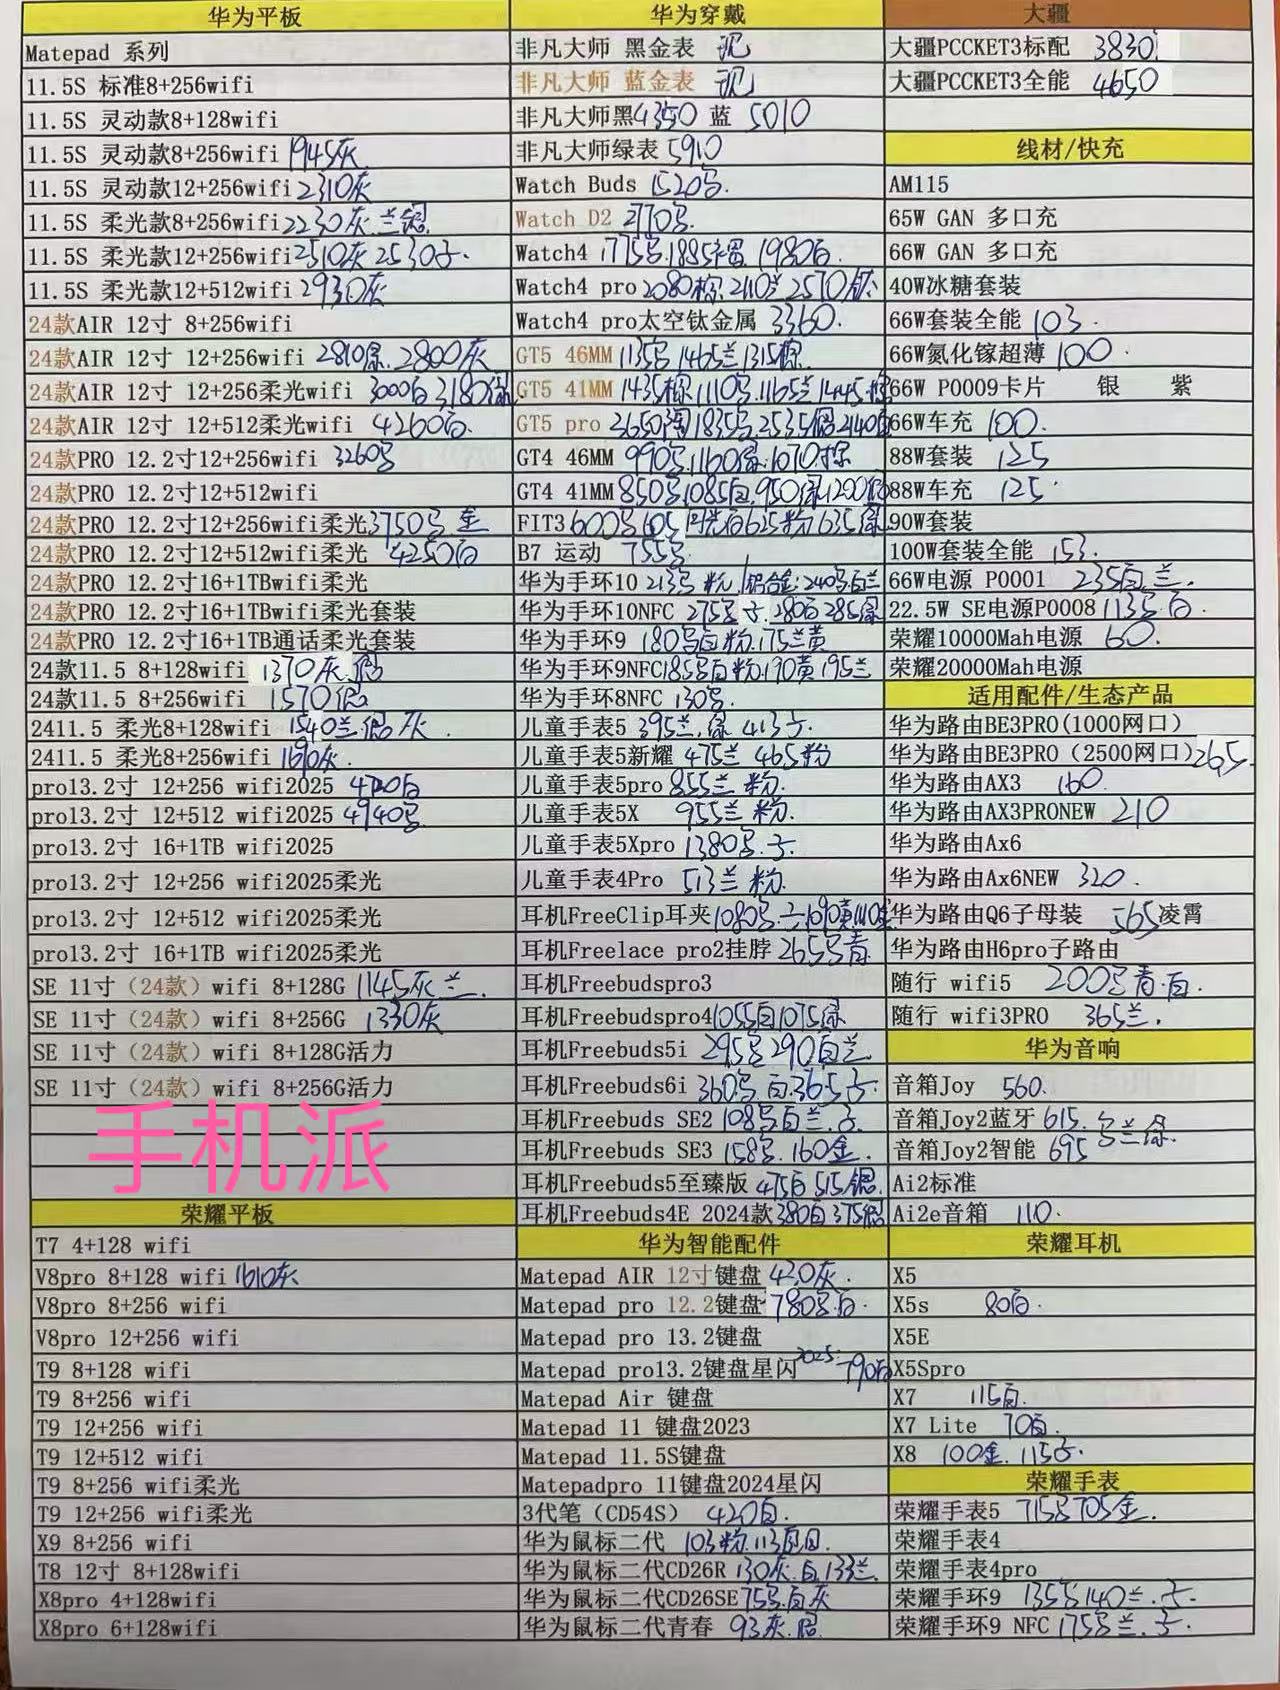 华为平板
Matepad 系列
11.5S 标准8+256wifi
11.5S 灵动款8+128wifi
11.5S 灵动款8+256wifi 1945灰
11.5S 灵动款12+256wifi 2310灰
11.5S 柔光款8+256wifi 2230灰.兰银
11.5S 柔光款12+256wifi 2510灰 2530子.
11.5S 柔光款12+512wifi 2930灰
24款AIR 12寸 8+256wifi
24款AIR 12寸 12+256wifi 2810绿.2800灰
24款AIR 12寸 12+256柔光wifi 3000白 3180绿
24款AIR 12寸 12+512柔光wifi 4260白.
24款PRO 12.2寸12+256wifi 3260号
24款PRO 12.2寸12+512wifi
24款PRO 12.2寸12+256wifi柔光 3750号 金
24款PRO 12.2寸12+512wifi柔光 4250白
24款PRO 12.2寸16+1TBwifi柔光
24款PRO 12.2寸16+1TBwifi柔光套装
24款PRO 12.2寸16+1TB通话柔光套装
24款11.5 8+128wifi 1370灰.银
24款11.5 8+256wifi 1570银
2411.5 柔光8+128wifi 1540兰.银 灰.
2411.5 柔光8+256wifi 1690灰.
pro13.2寸 12+256 wifi2025 4720白
pro13.2寸 12+512 wifi2025 4940号
pro13.2寸 16+1TB wifi2025
pro13.2寸 12+256 wifi2025柔光
pro13.2寸 12+512 wifi2025柔光
pro13.2寸 16+1TB wifi2025柔光
SE 11寸（24款）wifi 8+128G 1145灰 兰.
SE 11寸（24款）wifi 8+256G 1330灰
SE 11寸（24款）wifi 8+128G活力
SE 11寸（24款）wifi 8+256G活力
手机派
荣耀平板
T7 4+128 wifi
V8pro 8+128 wifi 1610灰
V8pro 8+256 wifi
V8pro 12+256 wifi
T9 8+128 wifi
T9 8+256 wifi
T9 12+256 wifi
T9 12+512 wifi
T9 8+256 wifi柔光
T9 12+256 wifi柔光
X9 8+256 wifi
T8 12寸 8+128wifi
X8pro 4+128wifi
X8pro 6+128wifi
华为穿戴
非凡大师 黑金表 现
非凡大师 蓝金表 现
非凡大师黑4350 蓝 5010
非凡大师绿表 5910
Watch Buds 1520号.
Watch D2 2770号.
Watch4 1775号.1885棕.1980白.
Watch4 pro 2080棕.2110兰 2570钛
Watch4 pro太空钛金属 3360.
GT5 46MM 1135号 1465兰 1315棕
GT5 41MM 1435棕.1110号.1165兰 1445
GT5 pro 2650陶 1835号.2535 2140白
GT4 46MM 990号.1160绿.1070棕
GT4 41MM 850号1085白.950绿 1200
FIT3 600号 605 白625粉 635绿
B7 运动 755号
华为手环10 213号 粉 铝合金:240号白兰
华为手环10NFC 275号 子.280白 285绿
华为手环9 180号白 粉.175兰黄
华为手环9NFC 185号白 粉.190黄 195兰
华为手环8NFC 130号.
儿童手表5 395兰.绿 413子.
儿童手表5新耀 475兰 465粉
儿童手表5pro 855兰 粉.
儿童手表5X 955兰 粉.
儿童手表5Xpro 1380号.子.
儿童手表4Pro 513兰 粉.
耳机FreeClip耳夹 1080号.子1090黄1110
耳机Freelace pro2挂脖 265号青
耳机Freebudspro3
耳机Freebudspro4 1055白1075绿
耳机Freebuds5i 295号 290白兰
耳机Freebuds6i 360号.白.365子.
耳机Freebuds SE2 108号白 兰.子.
耳机Freebuds SE3 158号.160金.
耳机Freebuds5至臻版 475白 515银.
耳机Freebuds4E 2024款 380白 375银
华为智能配件
Matepad AIR 12寸键盘 420灰.
Matepad pro 12.2键盘 780号白.
Matepad pro 13.2键盘
Matepad pro13.2键盘星闪 2025: 790白
Matepad Air 键盘
Matepad 11 键盘2023
Matepad 11.5S键盘
Matepadpro 11键盘2024星闪
3代笔（CD54S） 420白.
华为鼠标二代 103粉.113白
华为鼠标二代CD26R 130灰.白.133兰
华为鼠标二代CD26SE 75号.白灰
华为鼠标二代青春 93灰.
大疆
大疆PCCKET3标配 3830
大疆PCCKET3全能 4650
线材/快充
AM115
65W GAN 多口充
66W GAN 多口充
40W冰糖套装
66W套装全能 103.
66W氮化镓超薄 100.
66W P0009卡片 银 紫
66W车充 100.
88W套装 125
88W车充 125.
90W套装
100W套装全能 153.
66W电源 P0001 235白.兰.
22.5W SE电源P0008 113号.白.
荣耀10000Mah电源 60.
荣耀20000Mah电源
适用配件/生态产品
华为路由BE3PRO(1000网口)
华为路由BE3PRO（2500网口）265
华为路由AX3 160.
华为路由AX3PRONEW 210
华为路由Ax6
华为路由Ax6NEW 320.
华为路由Q6子母装 565凌霄
华为路由H6pro子路由
随行 wifi5 200号青.白.
随行 wifi3PRO 365兰.
华为音响
音箱Joy 560.
音箱Joy2蓝牙 615. 号兰绿.
音箱Joy2智能 695
Ai2标准
Ai2e音箱 110.
荣耀耳机
X5
X5s 80白.
X5E
X5Spro
X7 115白.
X7 Lite 70白.
X8 100金.115子.
荣耀手表
荣耀手表5 715号705金.
荣耀手表4
荣耀手表4pro
荣耀手环9 135号140兰.子.
荣耀手环9 NFC 175号兰.子.